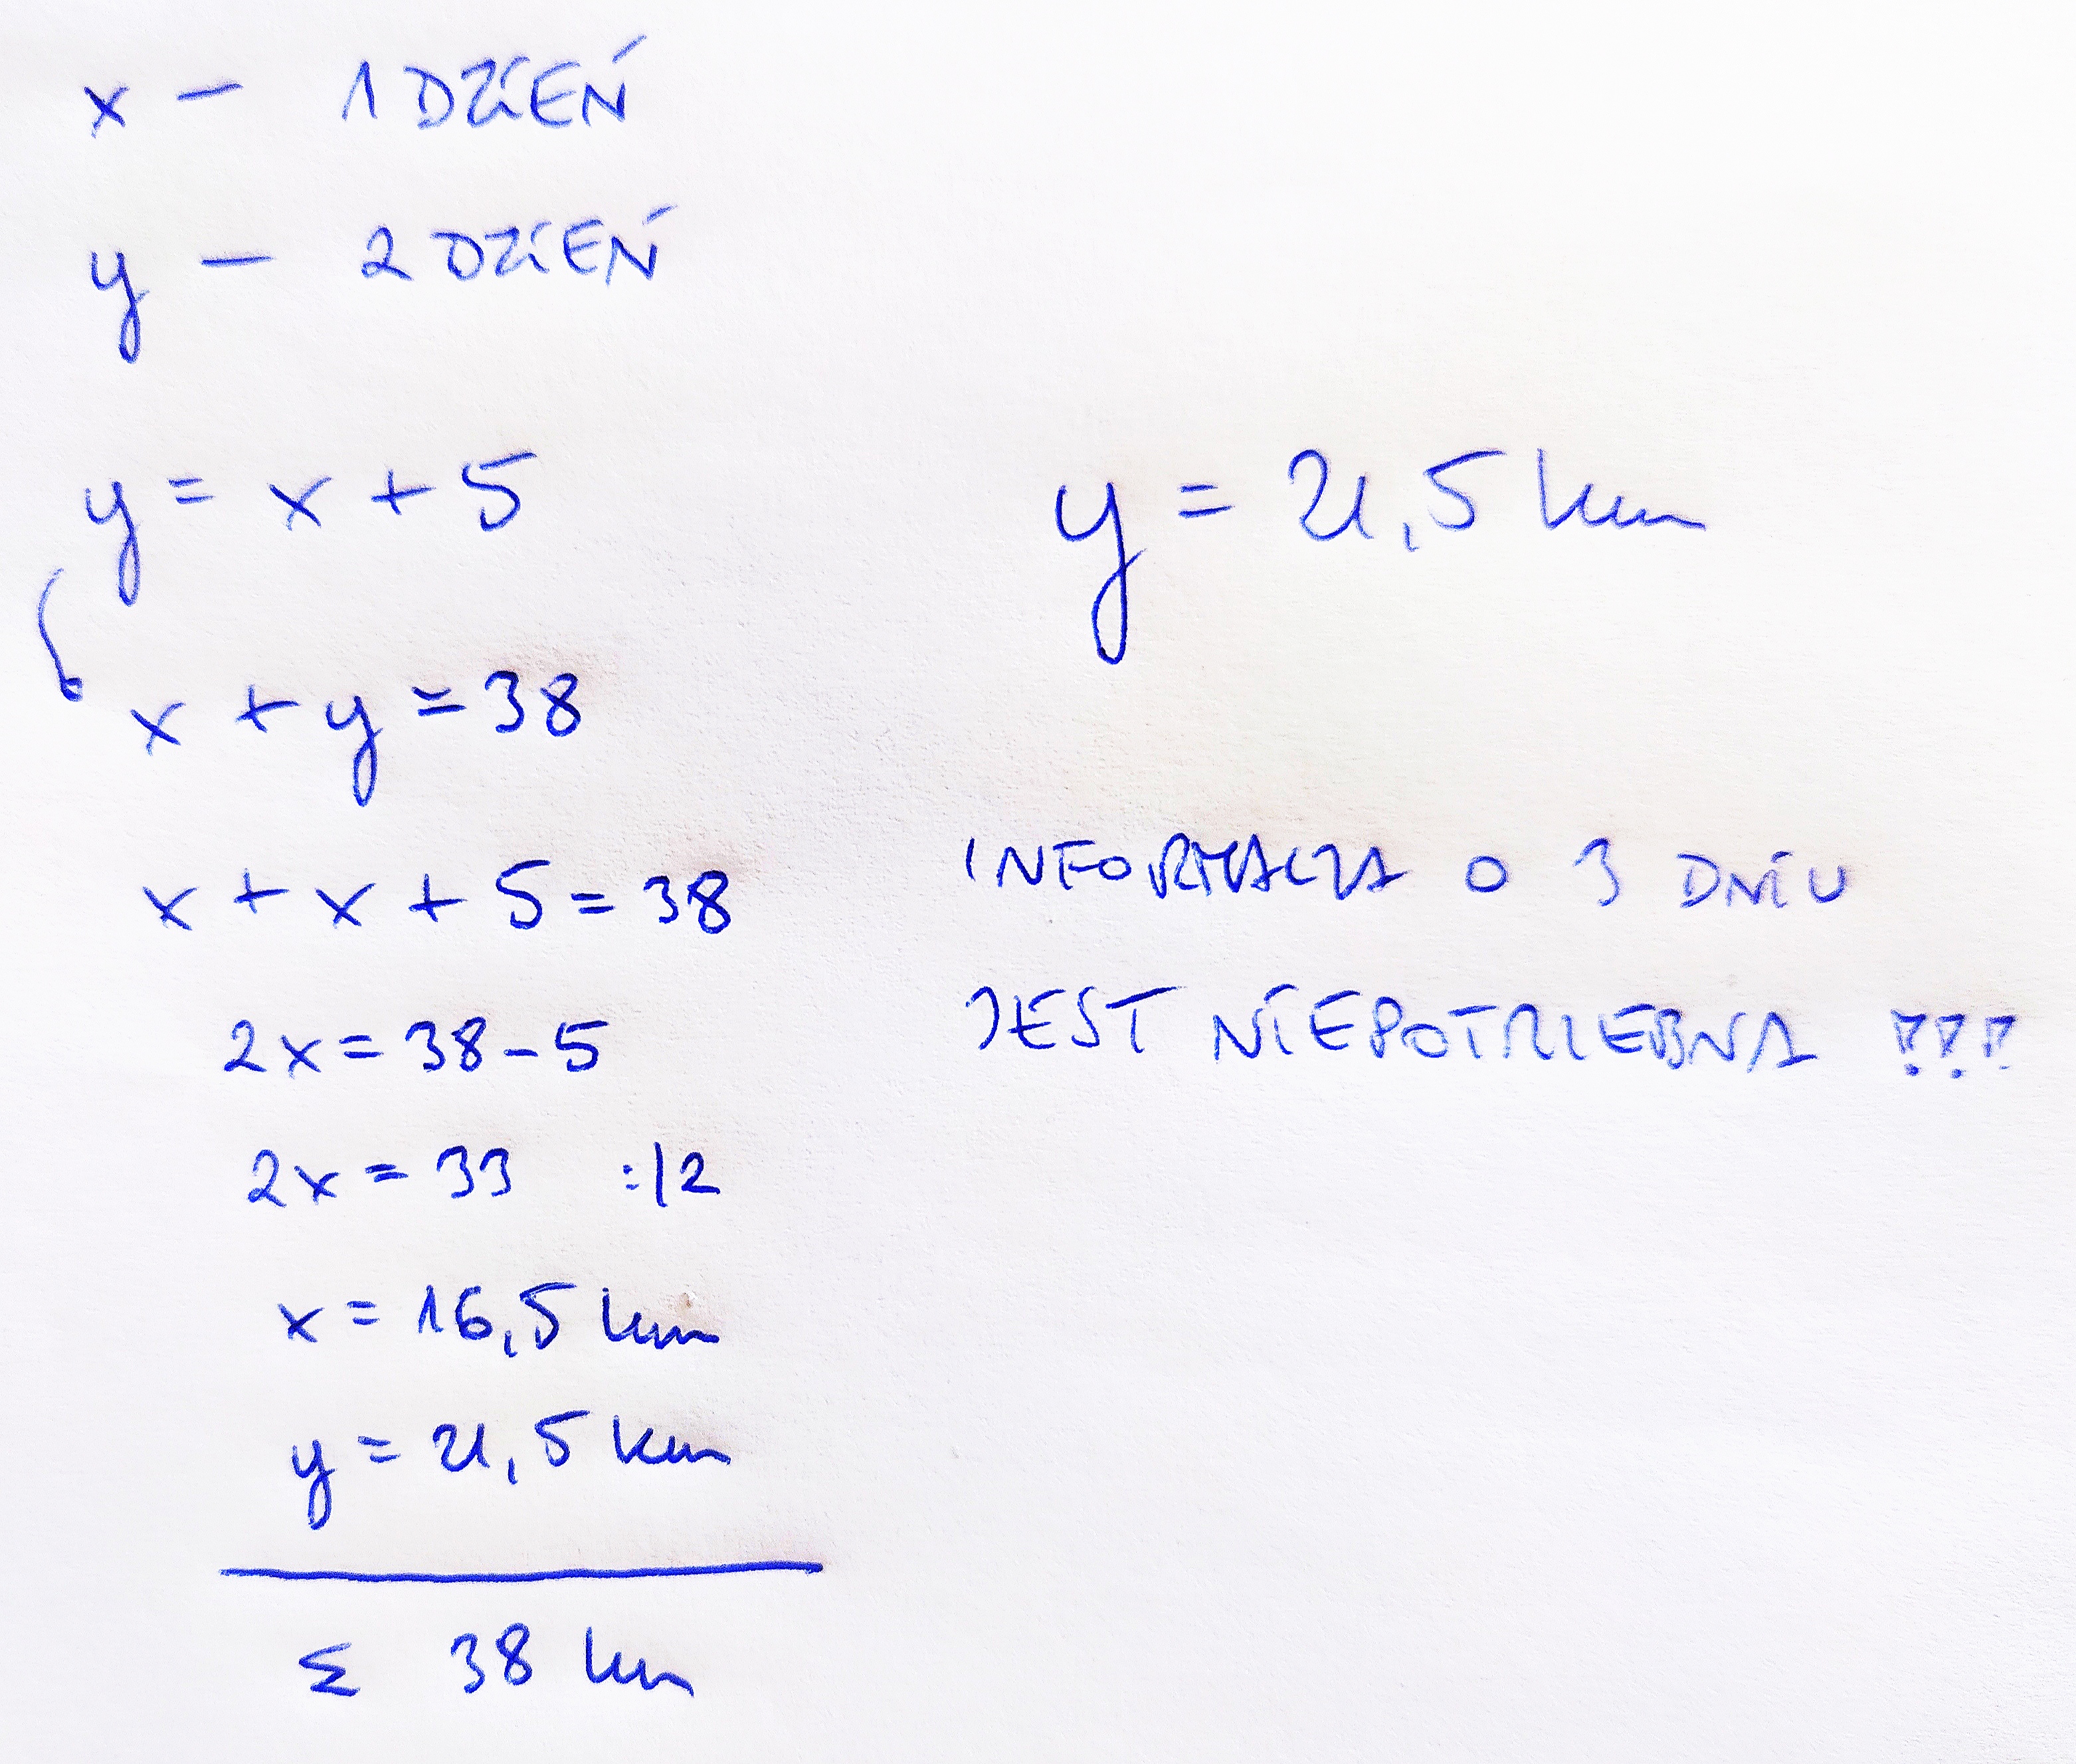 x - 1 DZIEŃ
y - 2 DZIEŃ
y = x + 5
x + y = 38
x + x + 5 = 38
2x = 38 - 5
2x = 33 :/2
x = 16,5 km
y = 21,5 km
Σ 38 km
y = 21,5 km
INFORMACJA O 3 DNIU
JEST NIEPOTRZEBNA ???